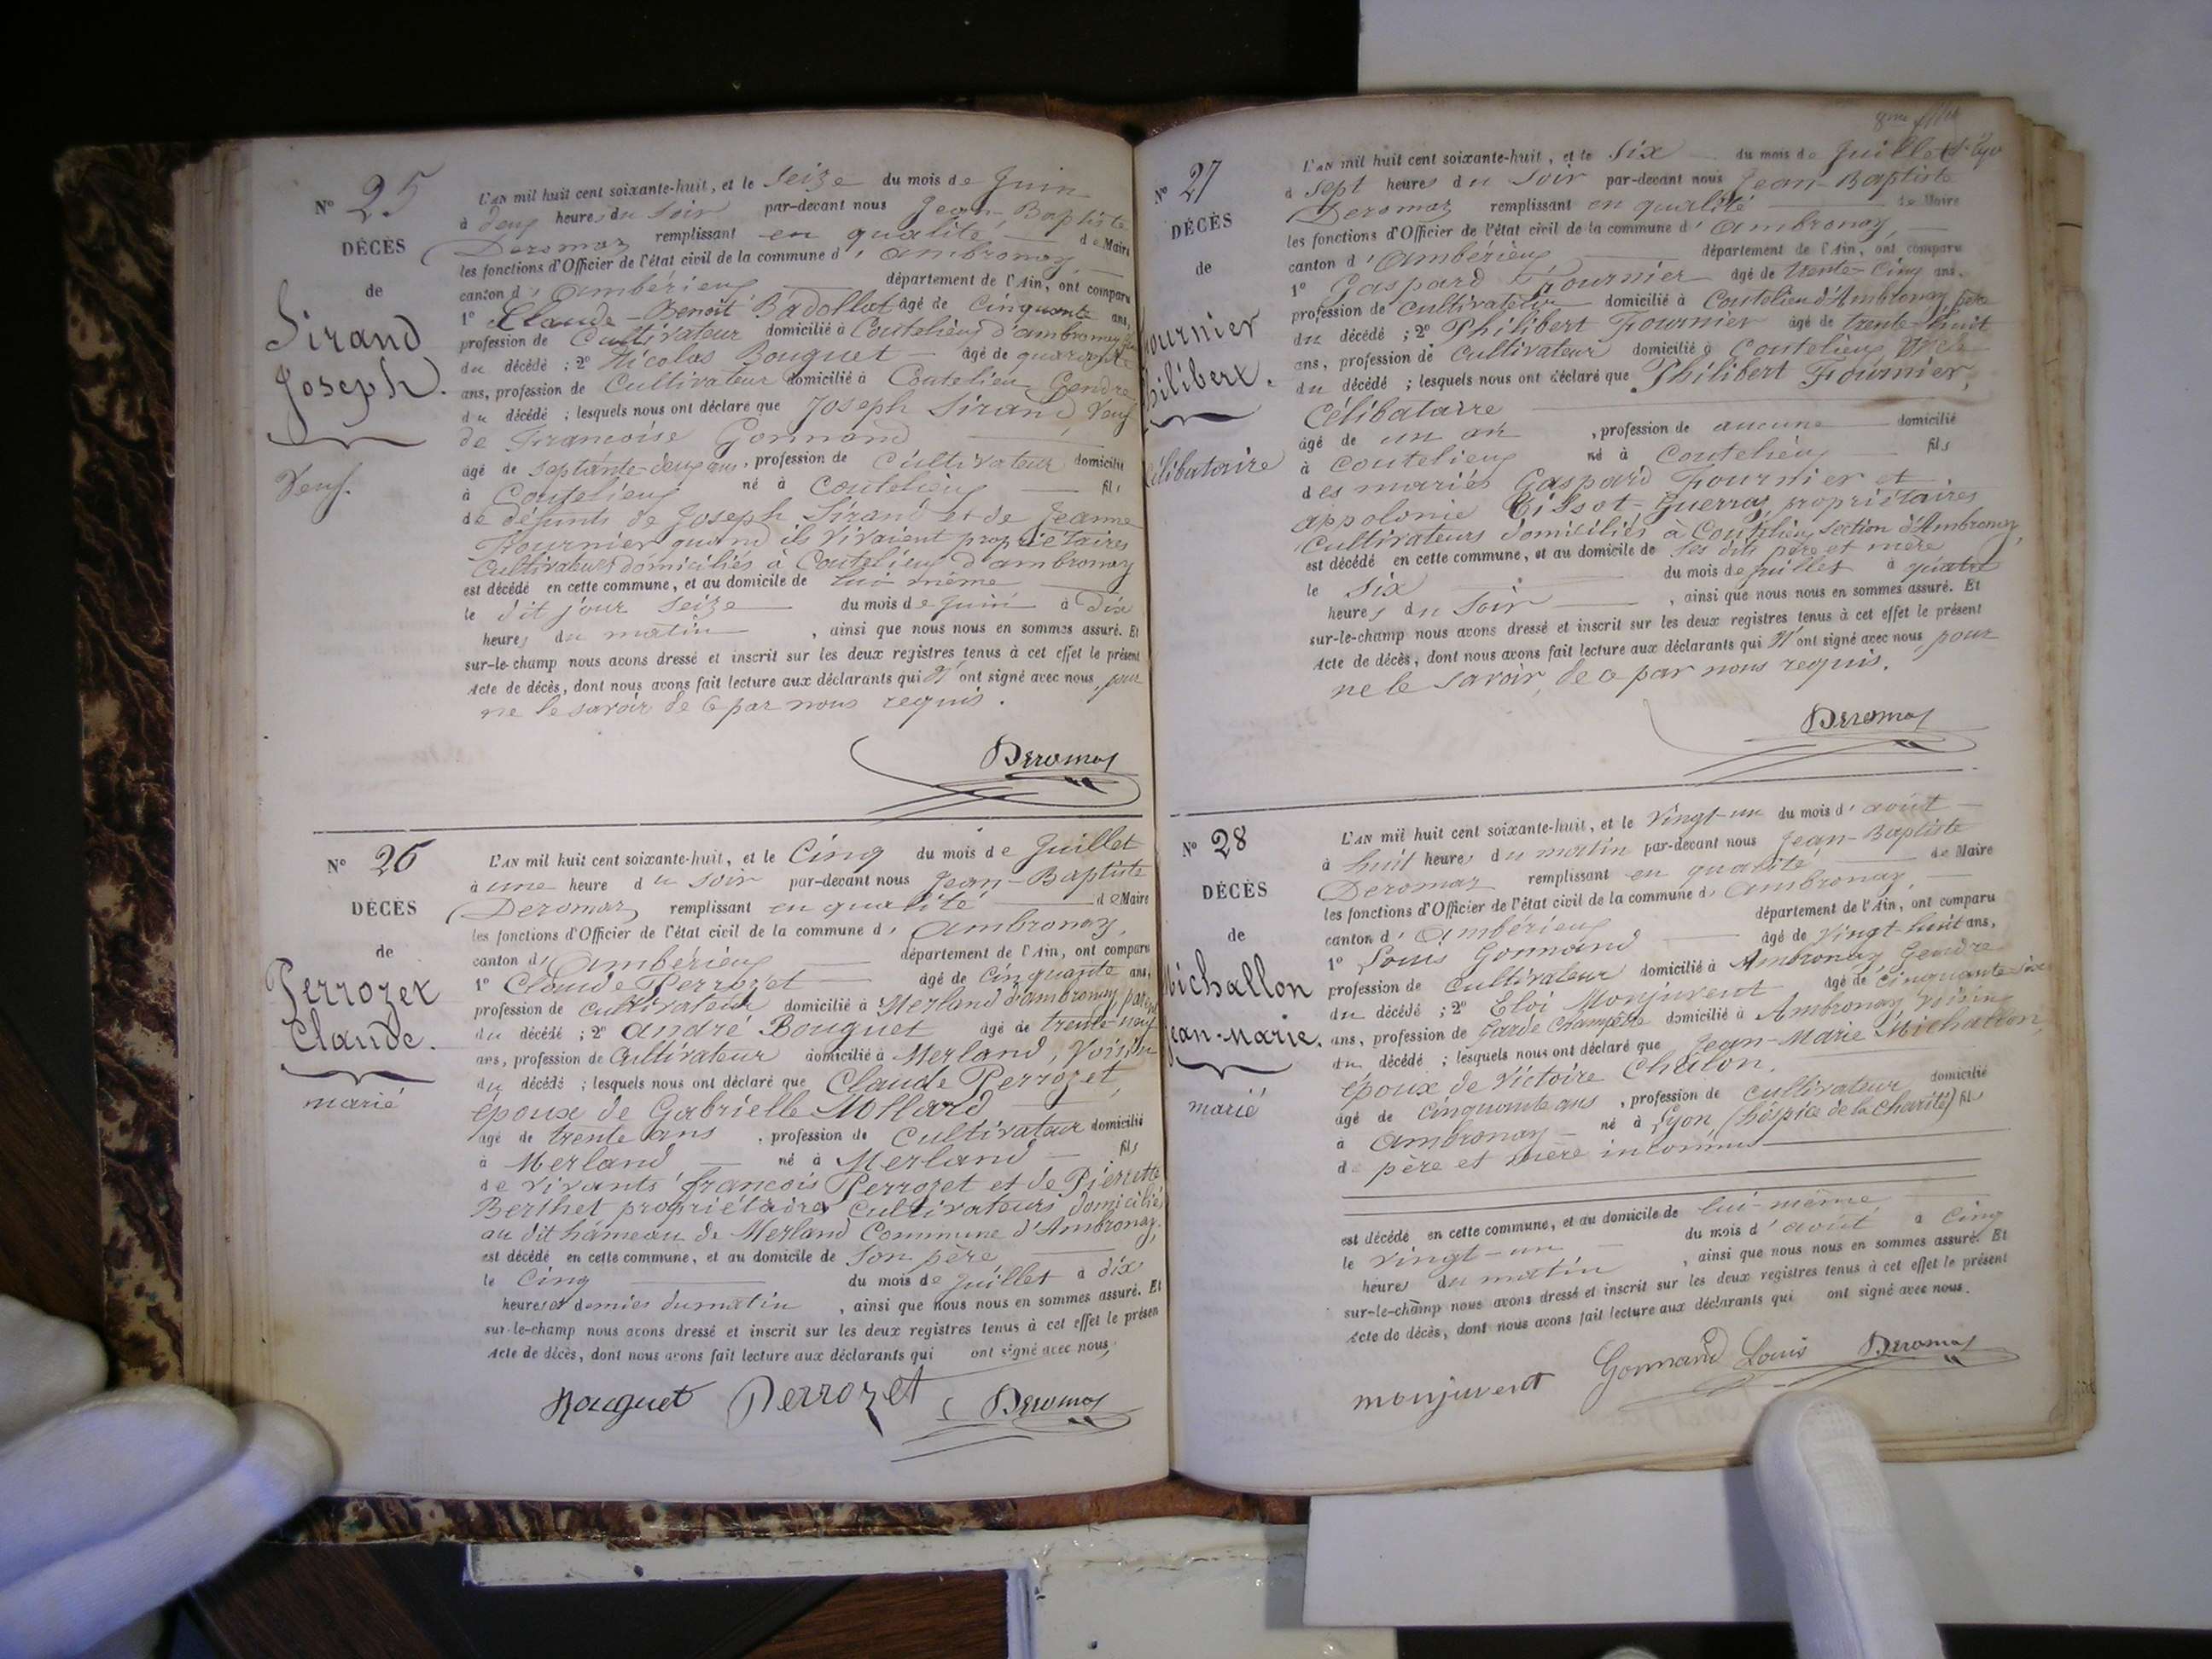 N° 25
DÉCÈS
de
Sirand
Joseph.
Veuf.
L'AN mil huit cent soixante-huit, et le seize du mois de Juin
à deux heures du soir par-devant nous Jean-Baptiste
Deromas remplissant en qualité de Maire
les fonctions d'Officier de l'état civil de la commune d'Ambronay,
canton d'Ambérieux département de l'Ain, ont comparu
1° Claude-Benoît Badollat âgé de cinquante ans,
profession de Cultivateur domicilié à Coutelieux d'ambronay
du décédé ; 2° Nicolas Bouguet âgé de quarante
ans, profession de Cultivateur domicilié à Coutelieux Gendre
du décédé ; lesquels nous ont déclaré que Joseph Sirand, Veuf
de Francoise Gonnand
âgé de septante-deux ans, profession de Cultivateur domicilié
à Coutelieux né à Coutelieux fils
de défunts de Joseph Sirand et de Jeanne
Fournier quand ils vivaient propriétaires
Cultivateurs domiciliés à Coutelieux d'ambronay
est décédé en cette commune, et au domicile de lui même
le dit jour seize du mois de juin à Dix
heures du matin , ainsi que nous nous en sommes assuré. Et
sur-le-champ nous avons dressé et inscrit sur les deux registres tenus à cet effet le présent
Acte de décès, dont nous avons fait lecture aux déclarants qui N'ont signé avec nous, pour
ne le savoir de ce par nous requis.
Deromas
N° 26
DÉCÈS
de
Perrozet
Claude.
marié
L'AN mil huit cent soixante-huit, et le Cinq du mois de Juillet
à une heure du soir par-devant nous Jean-Baptiste
Deromas remplissant en qualité de Maire
les fonctions d'Officier de l'état civil de la commune d'Ambronay,
canton d'Ambérieux département de l'Ain, ont comparu
1° Claude Perrozet âgé de Cinquante ans,
profession de Cultivateur domicilié à Merland d'ambronay,
du décédé ; 2° André Bouguet âgé de trente-neuf
ans, profession de Cultivateur domicilié à Merland, Voisin
du décédé ; lesquels nous ont déclaré que Claude Perrozet,
époux de Gabrielle Mollard
âgé de trente ans , profession de Cultivateur domicilié
à Merland né à Merland fils
de vivants françois Perrozet et de Pierrette
Berthet propriétaires Cultivateurs domiciliés
au dit hameau de Merland Commune d'Ambronay,
est décédé en cette commune, et au domicile de son père
le Cinq du mois de juillet à dix
heures et demies du matin , ainsi que nous nous en sommes assuré. Et
sur-le-champ nous avons dressé et inscrit sur les deux registres tenus à cet effet le présen
Acte de décès, dont nous avons fait lecture aux déclarants qui ont signé avec nous,
Bouguet Perrozet Deromas
N° 27
DÉCÈS
de
ournier
hilibert.
élibataire
L'AN mil huit cent soixante-huit, et le Six du mois de Juillet
à sept heures du soir par-devant nous Jean-Baptiste
Deromas remplissant en qualité de Maire
les fonctions d'Officier de l'état civil de la commune d'Ambronay,
canton d'Ambérieux département de l'Ain, ont comparu
1° Gaspard Fournier âgé de trente-cinq ans,
profession de cultivateur domicilié à Coutelieu d'Ambronay, père
du décédé ; 2° Philibert Fournier âgé de trente-huit
ans, profession de Cultivateur domicilié à Coutelieux
du décédé ; lesquels nous ont déclaré que Philibert Fournier,
Célibataire
âgé de un an , profession de aucune domicilié
à Coutelieux né à Coutelieux fils
des mariés Gaspard Fournier et
appolonie Tissot-Guerraz, propriétaires
Cultivateurs domiciliés à Coutelieux section d'Ambronay,
est décédé en cette commune, et au domicile de ses dits père et mère
le six du mois de juillet à quatre
heures du soir , ainsi que nous nous en sommes assuré. Et
sur-le-champ nous avons dressé et inscrit sur les deux registres tenus à cet effet le présent
Acte de décès, dont nous avons fait lecture aux déclarants qui N'ont signé avec nous, pour
ne le savoir, de ce par nous requis.
Deromas
N° 28
DÉCÈS
de
Michallon
Jean-Marie.
marié
L'AN mil huit cent soixante-huit, et le Vingt-un du mois d'août
à huit heures du matin par-devant nous Jean-Baptiste
Deromas remplissant en qualité de Maire
les fonctions d'Officier de l'état civil de la commune d'Ambronay,
canton d'Ambérieux département de l'Ain, ont comparu
1° Louis Gonnand âgé de vingt-huit ans,
profession de cultivateur domicilié à Ambronay Gendre
du décédé ; 2° Eloi Monjuvent âgé de cinquante-six
ans, profession de Garde Champêtre domicilié à Ambronay Voisin
du décédé ; lesquels nous ont déclaré que Jean-Marie Michallon,
époux de Victoire Chalon,
âgé de cinquante ans , profession de cultivateur domicilié
à Ambronay né à Lyon (hospice de la Charité) fils
de père et mère inconnus
est décédé en cette commune, et au domicile de lui-même
le vingt-un du mois d'août à cinq
heures du matin , ainsi que nous nous en sommes assuré. Et
sur-le-champ nous avons dressé et inscrit sur les deux registres tenus à cet effet le présent
Acte de décès, dont nous avons fait lecture aux déclarants qui ont signé avec nous.
monjuvent Gonnand Louis Deromas